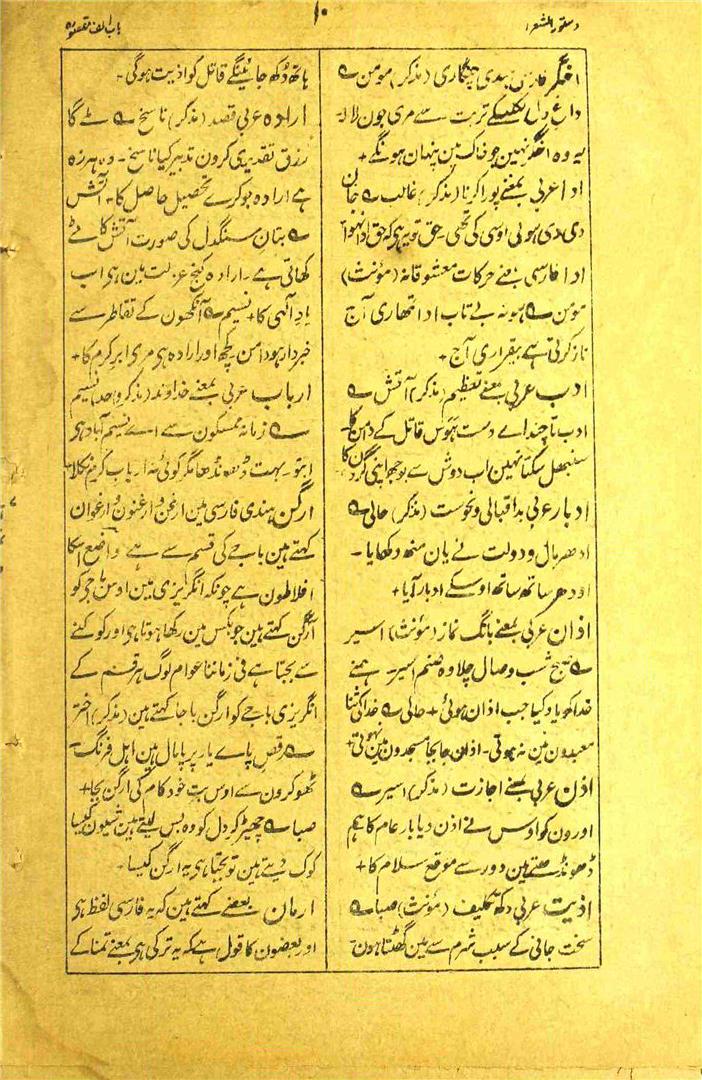 دستور الشعرا
۱۰
باب الف مقصورہ
اخگر فارسی ہندی چنگاری (مذکر) مومن ؎
داغ دل نکلیں گے تربت سے مری جون لالہ
یہ وہ اخگر نہین جو خاک مین پنہان ہونگے +
ادا عربی بمعنے پورا کرنا (مذکر) غالب ؎ جان
دی دی ہوئی اوسی کی تھی ۔ حق تو یہ ہی کہ حق ادا نہوا
ادا فارسی بمعنے حرکات معشوقانہ (مؤنث)
مومن ؎ ہو نہ بے تاب ادا تمھاری آج
ناز کرتی ہے بیقراری آج +
ادب عربی بمعنے تعظیم (مذکر) آتش ؎
ادب تا چند اے دست ہوس قاتل کے دامن کا ۔
سنبھل سکتا نہین اب دوش سے بوجھ اپنی گردن کا
ادبار عربی بد اقبالی و نحوست (مذکر) حالی ؎
ادھر مال و دولت نے یان منھ دکھایا ۔
اودھر ساتھ ساتھ اوسکے ادبار آیا +
اذان عربی بمعنے بانگ نماز (مؤنث) اسیر
؎ صبح شب وصال چلا وہ صنم اسیر ۔ ہمنے
خدا کو یاد کیا جب اذان ہوئی + حالی ؎
معبدون مین نہ ہوتی ۔ اذان جابجا مسجدون مین نہوتی +
اذن عربی بمعنے اجازت (مذکر) اسیر ؎
اورون کو اوس نے اذن دیا بار عام کا ہم
ڈھونڈھتے ہین دور سے موقع سلام کا +
اذیت عربی دکھ تکلیف (مؤنث) صبا ؎
سخت جانی کے سبب شرم سے مین گھٹتا ہون
ہاتھ دُکھ جائینگے قاتل کو اذیت ہوگی ۔
ارادہ عربی قصد (مذکر) ناسخ ؎ ملے گا
رزق تقدیری کرون تدبیر کیا ناسخ ۔ وہ ہرزہ
ہے ارادہ جو کرے تحصیل حاصل کا ۔ آتش
؎ بتان سنگدل کی صورت آتش کاٹے
کھاتی ہے ۔ ارادہ کنج عزلت مین ہی اب
یاد الٰہی کا + نسیم ؎ آنکھون کے تقاطر سے
خبردار ہو دامن کچھ اور ارادہ ہی مری ابر کرم کا +
ارباب عربی بمعنے خداوند (مذکر واحد) نسیم
؎ زمانہ مسکون سے اے نسیم آباد ہی
ابتو ۔ بہت ڈھونڈھا مگر کوئی نہ ارباب کرم نکلا
ارگن ہندی فارسی مین ارغن و ارغنون و ارغوان
کہتے ہین باجے کی قسم سے ہے واضع اسکا
افلاطون ہے چونکہ انگریزی مین اوس باجی کو
آرگن کہتے ہین جو بکس مین رکھا ہوتا ہی اور کوکنے
سے بجتا ہے فی زماننا عوام لوگ ہر قسم کے
انگریزی باجے کو ارگن باجا کہتے ہین (مذکر) اختر
؎ رقص پاے یار پر پامال ہین اہل فرنگ ۔
ٹھوکرون سے اوس بت خود کام کی ارگن بجا +
صبا ؎ چھیڑ کر دل کو وہ بس لیتے ہین شیون کیسا
کوک دیتے ہین تو بجتا ہی یہ ارگن کیسا ۔
ارمان بعضے کہتے ہین کہ یہ فارسی لفظ ہی
اور بعضون کا قول ہے کہ یہ ترکی ہی بمعنے تمنا کے